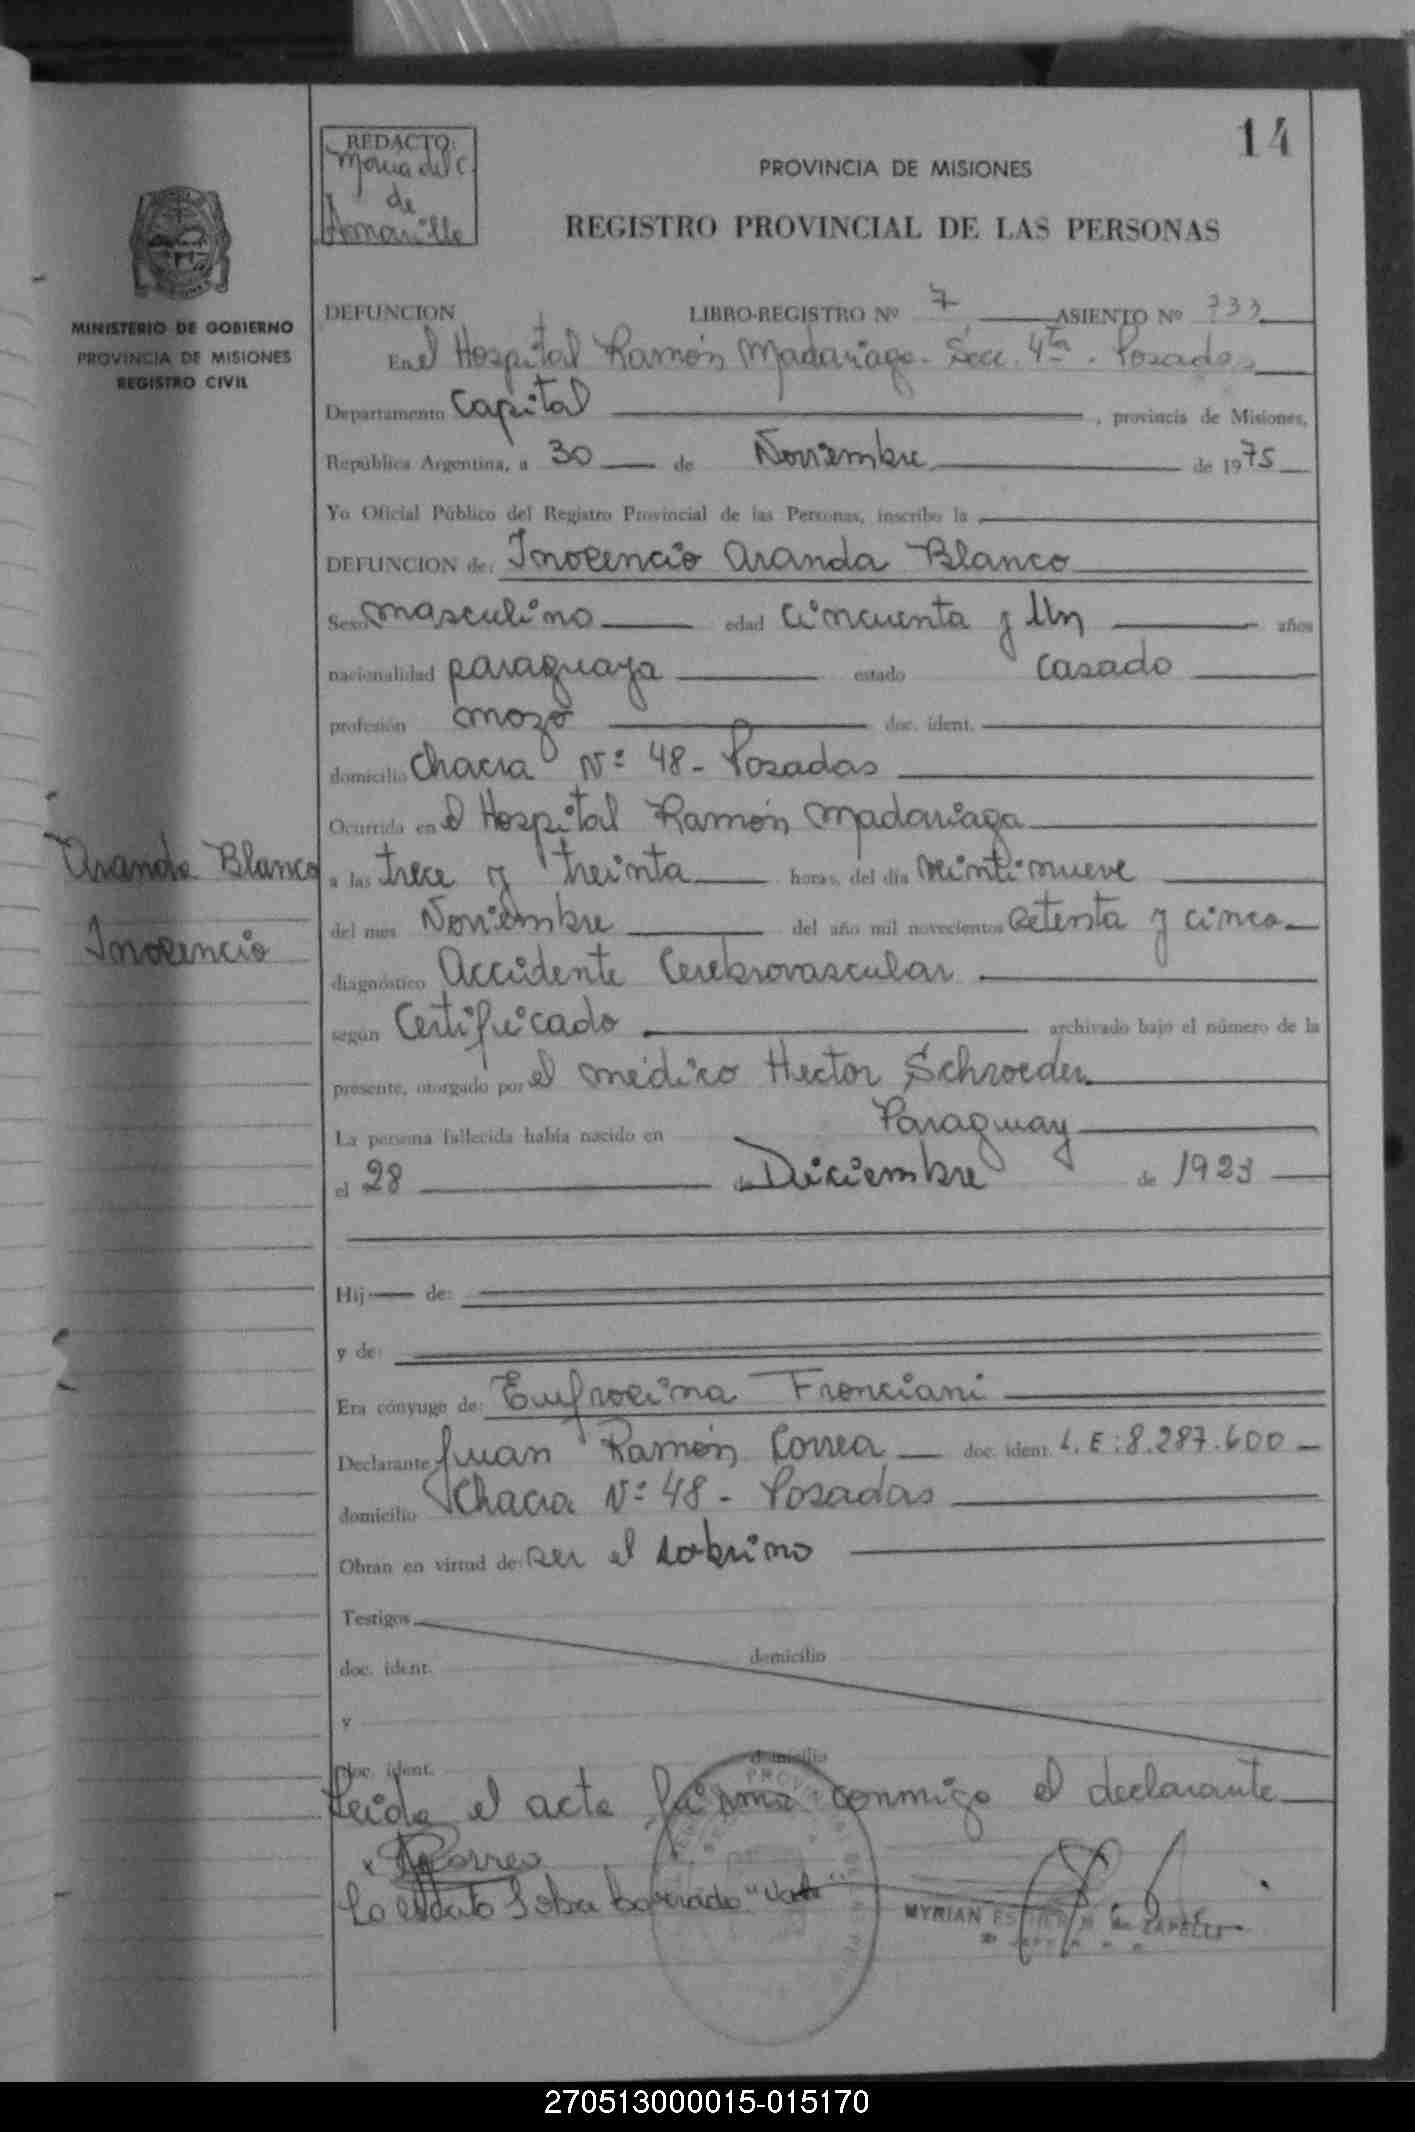 14
REDACTO:
Maria del C.
de
Amarille
PROVINCIA DE MISIONES
REGISTRO PROVINCIAL DE LAS PERSONAS
MINISTERIO DE GOBIERNO
PROVINCIA DE MISIONES
REGISTRO CIVIL
DEFUNCION LIBRO-REGISTRO Nº 7 ASIENTO Nº 733
En el Hospital Ramón Madariaga - Secc. 4ta. Posadas
Departamento Capital, provincia de Misiones,
República Argentina, a 30 de Noviembre de 1975
Yo Oficial Público del Registro Provincial de las Personas, inscribo la
DEFUNCION de: Inocencio Aranda Blanco
Sexo masculino edad cincuenta y un años
nacionalidad paraguaya estado casado
profesión mozo doc. ident.
domicilio Chacra Nº 48 - Posadas
Ocurrida en el Hospital Ramón Madariaga
Aranda Blanco
Inocencio
a las trece y treinta horas, del día veintinueve
del mes Noviembre del año mil novecientos setenta y cinco
diagnóstico Accidente Cerebrovascular
según Certificado archivado bajo el número de la
presente, otorgado por el médico Hector Schroeder
La persona fallecida había nacido en Paraguay
el 28 de Diciembre de 1923
Hij de:
y de:
Era cónyuge de: Eufrocina Franciani
Declarante Juan Ramón Correa doc. ident. L.E: 8.287.600
domicilio Chacra Nº 48 - Posadas
Obran en virtud de: ser el sobrino
Testigos
doc. ident. domicilio
y
doc. ident. domicilio
Leida el acta firma conmigo el declarante
Correa
Lo escrito sobre borrado
MYRIAN ESTHER de ZAPELLI